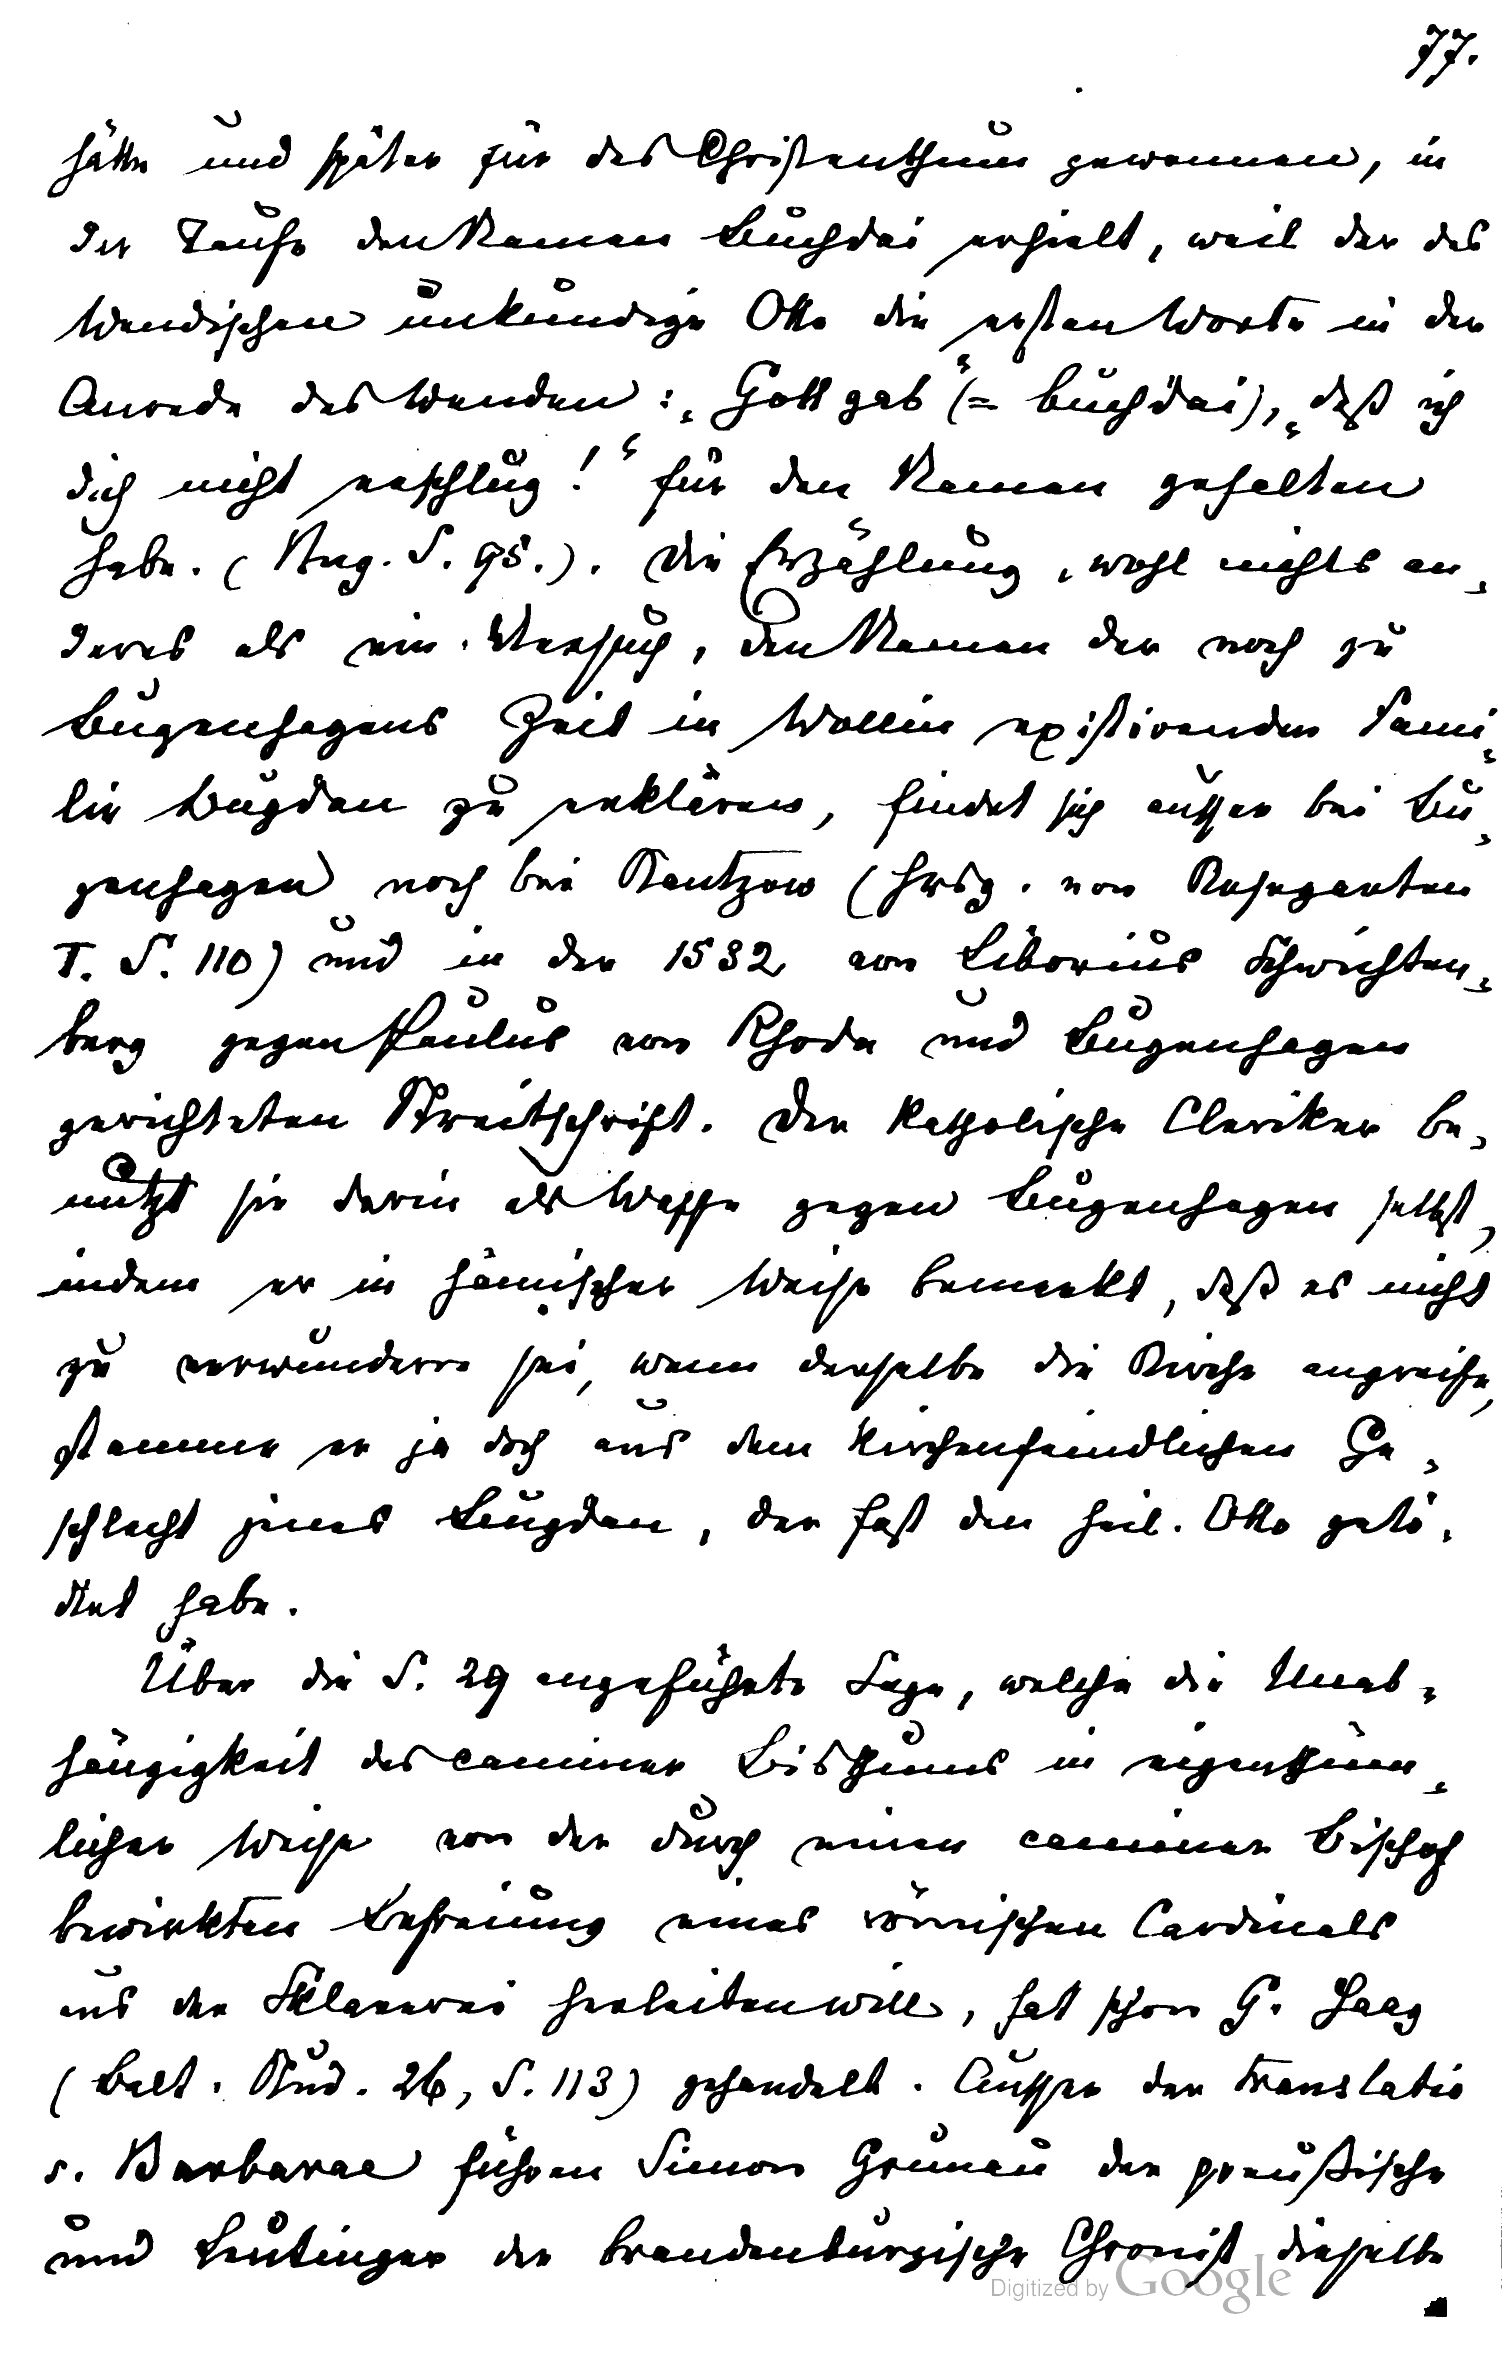 77.
hätte und später für das Christenthum gewonnen, in
der Taufe den Namen Buchdai erhielt, weil der des
Wendischen unkundige Otto die ersten Worte in der
Anrede des Wenden: „Gott gab“ (= buch dai), „daß ich
dich nicht erschlug!“ für den Namen gehalten
habe. (Bug. S. 95.). Die Erzählung, wohl nichts an-
deres als ein Versuch, den Namen der noch zu
Bugenhagens Zeit in Wollin existirenden Fami-
lie Bugdan zu erklären, findet sich ausser bei Bu-
genhagen noch bei Kantzow (hrsg. von Kosegarten
I. S. 110) und in der 1532 von Liborius Schwichten-
berg gegen Paulus von Rhoda und Bugenhagen
gerichteten Streitschrift. Der katholische Cleriker be-
nutzt sie darin als Waffe gegen Bugenhagen selbst,
indem er in hämischer Weise bemerkt, daß es nicht
zu verwundern sei, wenn derselbe die Kirche angreife,
stamme er ja doch aus dem kirchenfeindlichen Ge-
schlecht jenes Bugdan, der fast den heil. Otto getö-
dtet habe.
Über die S. 29 angeführte Sage, welche die Unab-
hängigkeit des caminer Bisthums in eigenthüm-
licher Weise von der durch einen caminer Bischof
bewirkten Befreiung eines römischen Cardinals
aus der Sklaverei herleiten will, hat schon G. Haag
(Balt. Stud. 26, S. 113) gehandelt. Ausser der translatio
s. Barbarae führen Simon Grunau der preußische
und Leutinger der brandenburgische Chronist dieselbe
Digitized by Google